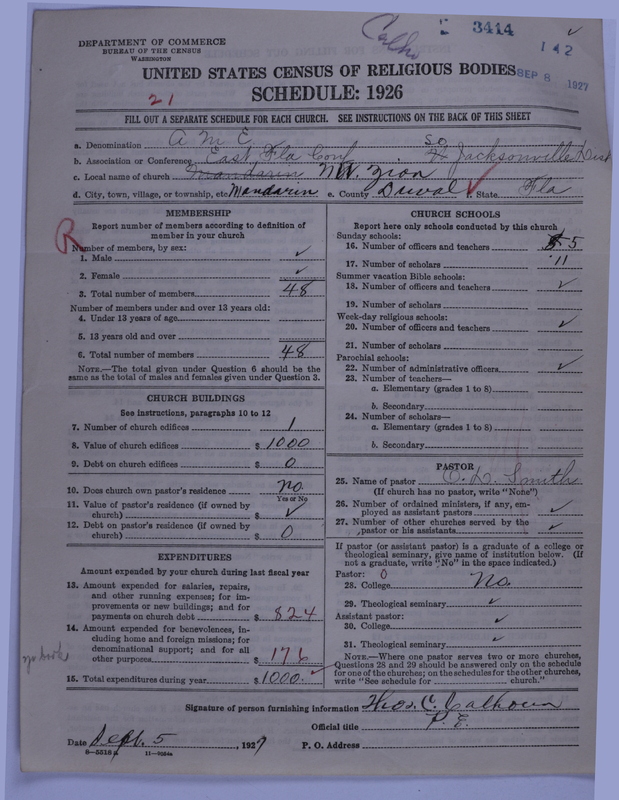 Calho
3414
142
DEPARTMENT OF COMMERCE
BUREAU OF THE CENSUS
WASHINGTON
UNITED STATES CENSUS OF RELIGIOUS BODIES
SEP 8 1927
21
SCHEDULE: 1926
FILL OUT A SEPARATE SCHEDULE FOR EACH CHURCH. SEE INSTRUCTIONS ON THE BACK OF THIS SHEET
a. Denomination A M E
b. Association or Conference East Fla Conf. So Jacksonville Dist
c. Local name of church Mandarin Mt. Zion
d. City, town, village, or township, etc. Mandarin e. County Duval f. State Fla
MEMBERSHIP
Report number of members according to definition of
member in your church
R
Number of members, by sex:
1. Male
2. Female
3. Total number of members 48
Number of members under and over 13 years old:
4. Under 13 years of age
5. 13 years old and over
6. Total number of members 48
NOTE.—The total given under Question 6 should be the
same as the total of males and females given under Question 3.
CHURCH BUILDINGS
See instructions, paragraphs 10 to 12
7. Number of church edifices 1
8. Value of church edifices $ 1000
9. Debt on church edifices $ 0
10. Does church own pastor's residence no
Yes or No
11. Value of pastor's residence (if owned by
church) $
12. Debt on pastor's residence (if owned by
church) $ 0
EXPENDITURES
Amount expended by your church during last fiscal year
13. Amount expended for salaries, repairs,
and other running expenses; for im-
provements or new buildings; and for
payments on church debt $ 824
14. Amount expended for benevolences, in-
cluding home and foreign missions; for
denominational support; and for all
other purposes $ 176
15. Total expenditures during year $ 1000.
CHURCH SCHOOLS
Report here only schools conducted by this church
Sunday schools:
16. Number of officers and teachers 5
17. Number of scholars 11
Summer vacation Bible schools:
18. Number of officers and teachers
19. Number of scholars
Week-day religious schools:
20. Number of officers and teachers
21. Number of scholars
Parochial schools:
22. Number of administrative officers
23. Number of teachers—
a. Elementary (grades 1 to 8)
b. Secondary
24. Number of scholars—
a. Elementary (grades 1 to 8)
b. Secondary
PASTOR
25. Name of pastor Smith
(If church has no pastor, write "None")
26. Number of ordained ministers, if any, em-
ployed as assistant pastors
27. Number of other churches served by the
pastor or his assistants
If pastor (or assistant pastor) is a graduate of a college or
theological seminary, give name of institution below. (If
not a graduate, write "No" in the space indicated.)
Pastor: 0
28. College No.
29. Theological seminary
Assistant pastor:
30. College
31. Theological seminary
NOTE.—Where one pastor serves two or more churches,
Questions 28 and 29 should be answered only on the schedule
for one of the churches; on the schedules for the other churches,
write "See schedule for church."
Signature of person furnishing information Thos. C. Calhoun
Official title P. E.
Date Sept. 5, 1927 P. O. Address
8—5518a 11—9054a